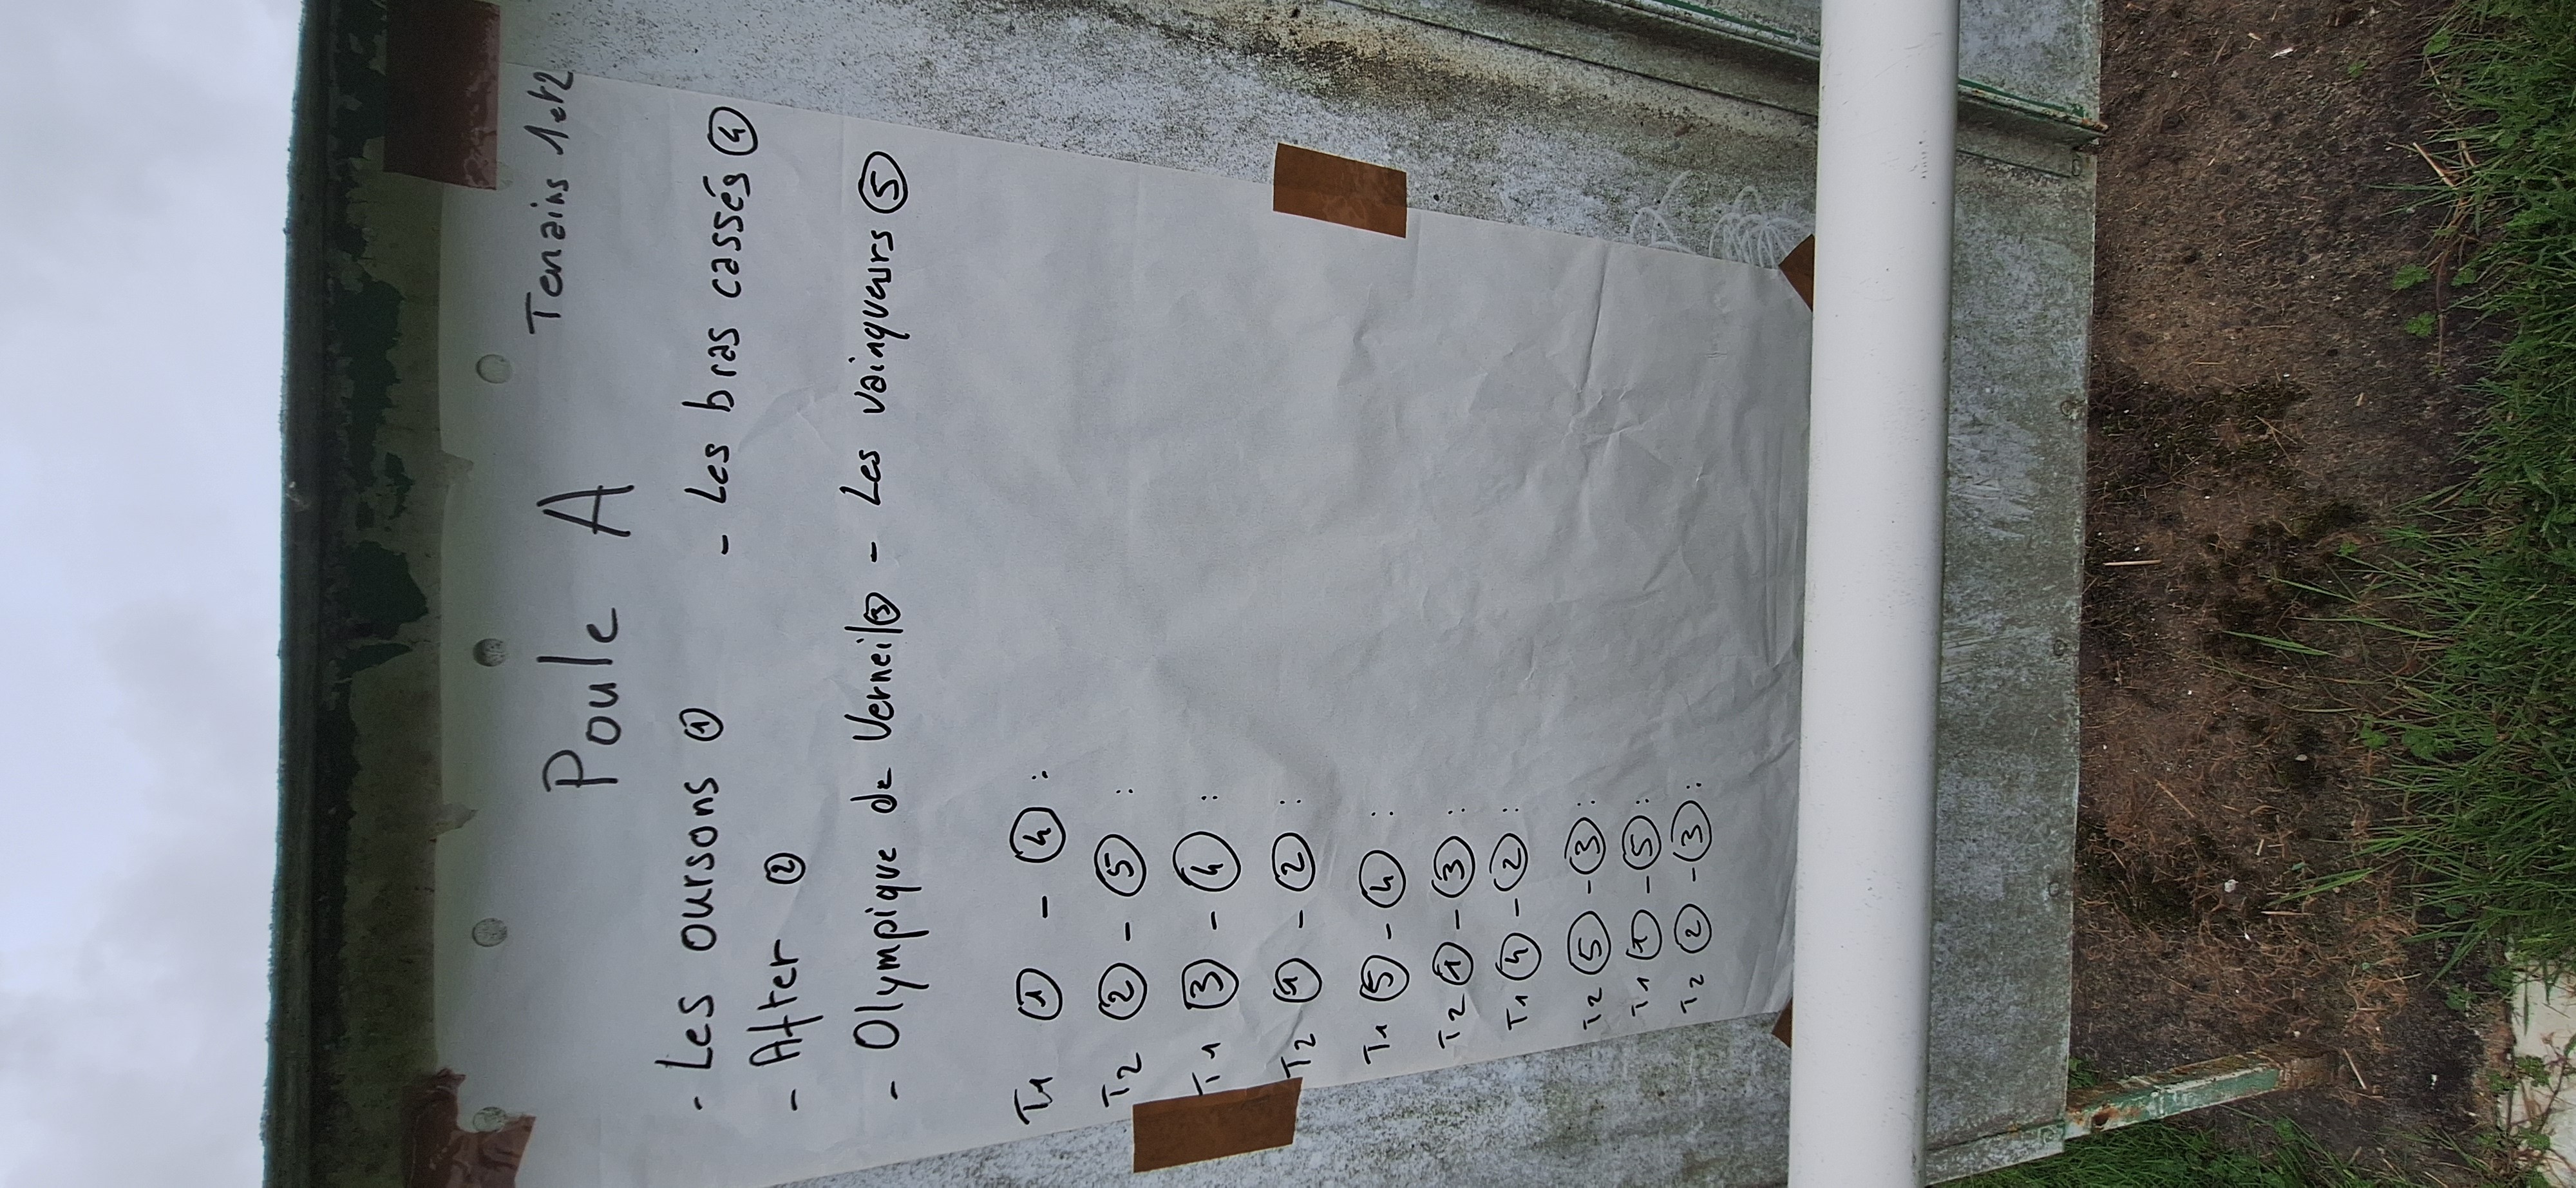 Poule A Terrains 1 et 2
- Les oursons ① - Les bras cassés ④
- After ②
- Olympique de Verneil ③ - Les vainqueurs ⑤
T1 ① - ④ :
T2 ② - ⑤ :
T1 ③ - ④ :
T2 ① - ② :
T1 ⑤ - ④ :
T2 ① - ③ :
T1 ④ - ② :
T2 ⑤ - ③ :
T1 ① - ⑤ :
T2 ② - ③ :